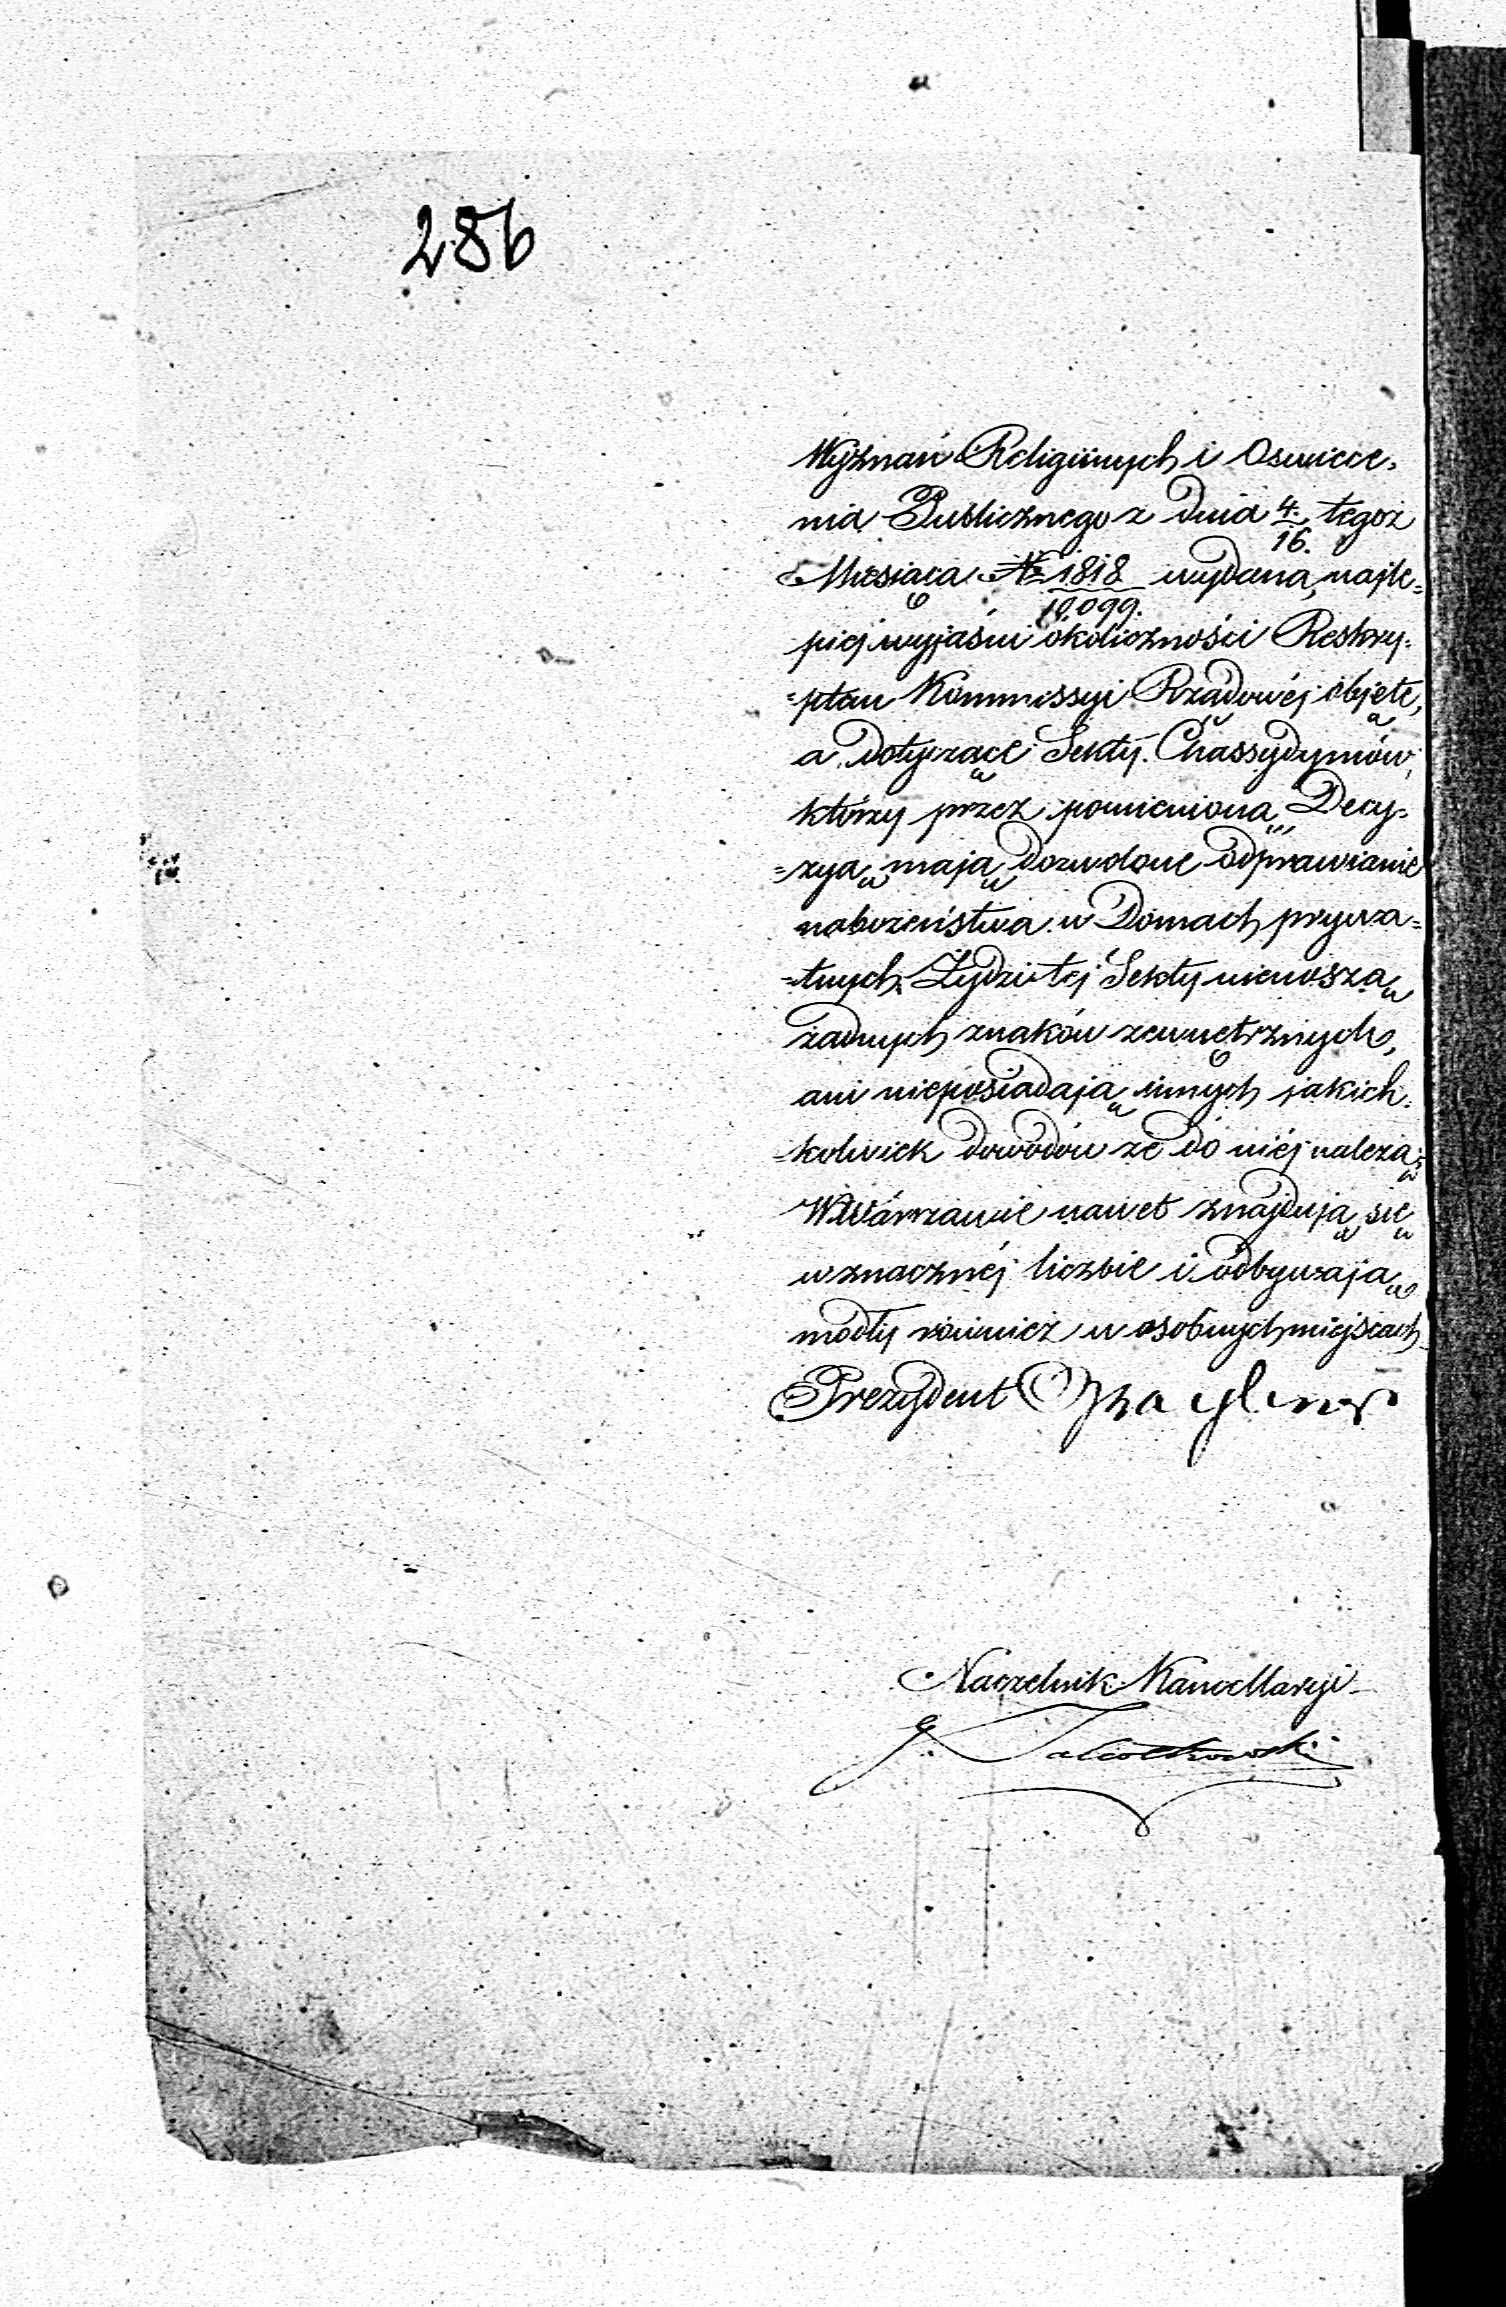 286
Wyznań Religiinych i Oswiece-
nia Publicznego z dnia 4./16. tegoż
Miesiąca № 1818/10099. wydana, najle-
piej wyjaśni okoliczności Reskry-
=ptem Kommissyi Rządowéj objęte,
a dotyczące Sekty Chassydymów,
którzy przez pomienioną Decy-
=zyą mają dozwolone odprawianie
nabożeństwa w Domach prywa=
=tnych. Żydzi téj Sekty nienoszą
żadnych znaków zewnętrznych,
ani nieposiadają innych jakich-
=kolwiek dowodów że do niéj należą;
W Warszawie nawet znajdują się
w znacznéj liczbie i odbywają
modły również w osobnych miejscach
Prezydent
Naczelnik Kancellaryi